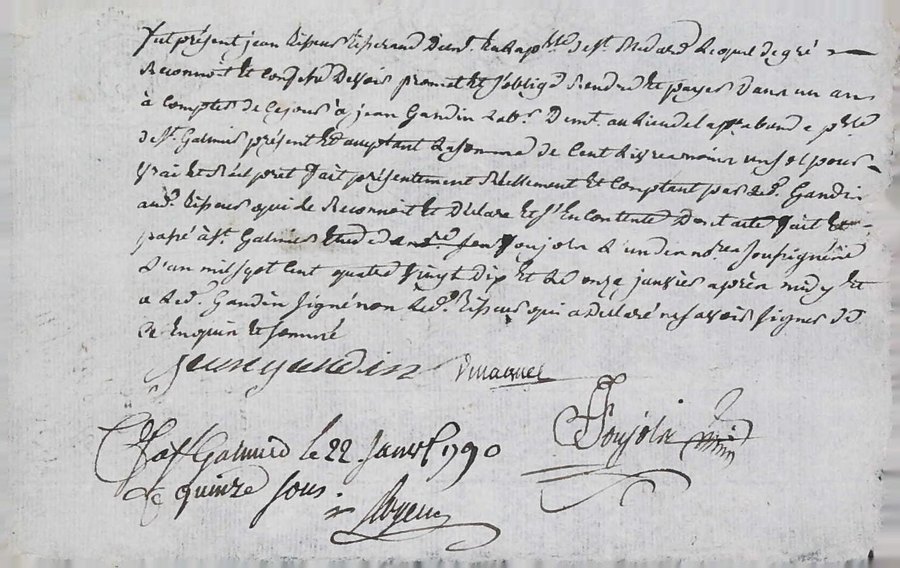 fut présent jean tisseur tisserand dem.t en la p.sse de s.t medard lequel de gré
Reconnoit et confesse devoir promet et s'oblige rendre et payer dans un an
à compter de ce jour à jean Gandin lab.r dem.t au lieu de p.sse
de s.t Galmier présent et acceptant la somme de cent livres moins un sol pour
vrai et réel prêt fait présentement réellement et comptant par led. Gandin
aud. tisseur qui le Reconnoit et déclare et s'en contente Dont acte fait et
passé à s.t Galmier étude de Joujoln l'un de no.res soussignéné
l'an mil sept cent quatre vingt dix et le onze janvier après midy et
a led. Gandin signé non led. tisseur qui a déclaré ne savoir signer
Enquis et sommé
jean gandin
Joujoln
C à st Galmier le 22 Janv. 1790
R quinze sous